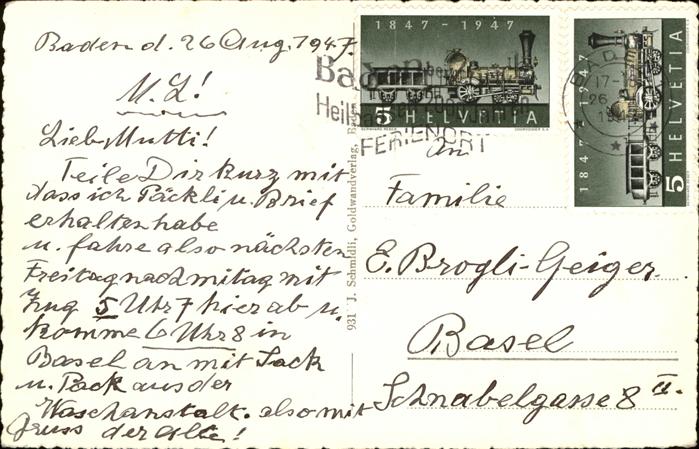 Baden d. 26 Aug. 1947.
M. L!
Lieb. Mutti!
Teile Dir kurz mit
dass ich Päckli u. Brief
erhalten habe
u. fahre also nächsten
Freitag nachmitag mit
Zug 5 Uhr 7 hier ab u.
komme 6 Uhr 8 in
Basel an mit Sack
u. Pack aus der
Waschanstalt. also mit
Gruss der Alte!
931 J. Schmidli, Goldwandverlag, Baden
1847 - 1947
5 HELVETIA
1847 - 1947
5 HELVETIA
Baden
FERIENORT
BADEN
17-
26
1947
An
Familie
E. Brogli-Geiger.
Basel
Schnabelgasse 8 II.